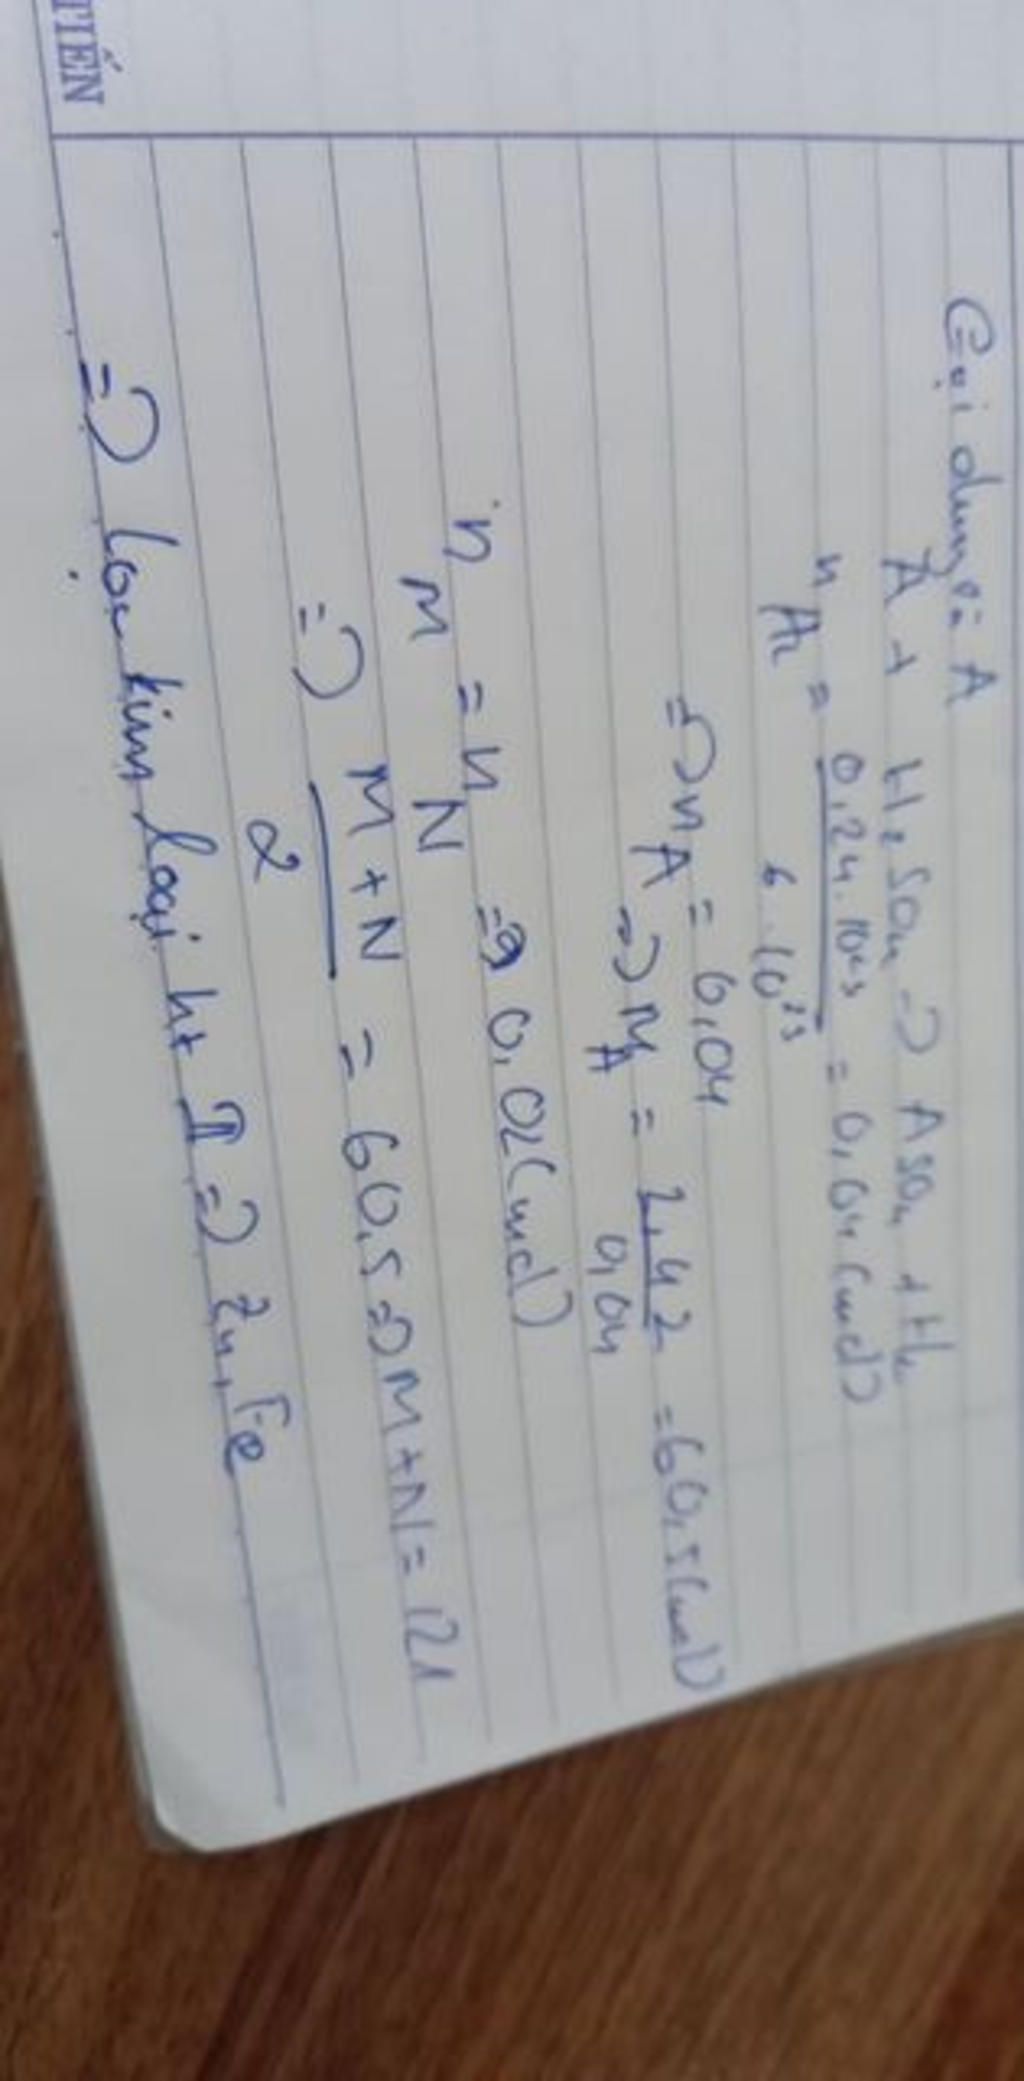 Gọi chung là A
A + H2SO4 => ASO4 + H2
nH2 = 0,24.10^23 / 6.10^23 = 0,04 (mol)
=> nA = 0,04
=> MA = 2,42 / 0,04 = 60,5 (mol)
nM = nN => 0,02 (mol)
=> M + N / 2 = 60,5 => M + N = 121
=> Các kim loại ht II => Zn, Fe
TIẾN